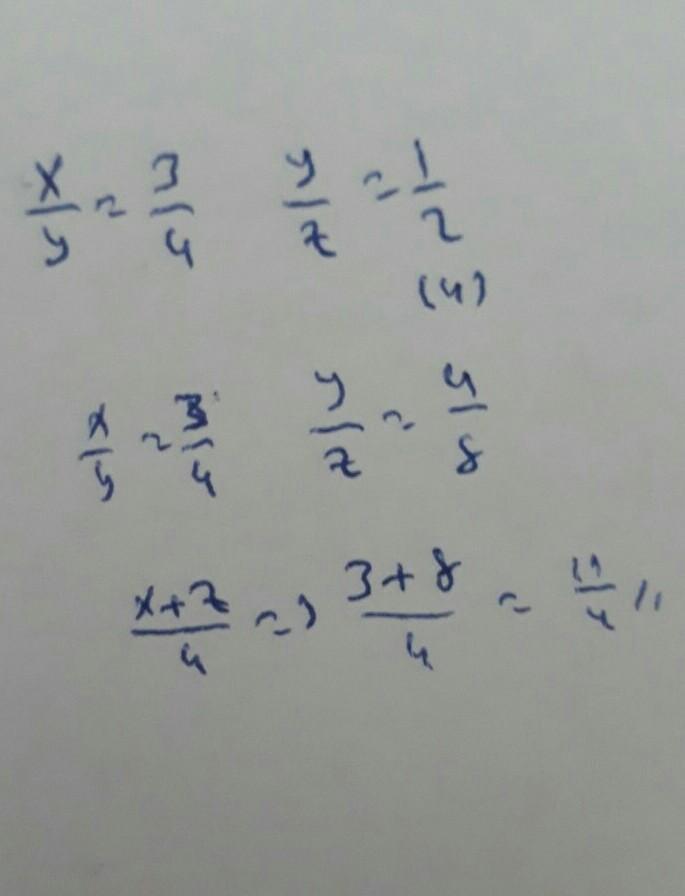 x/y = 3/4 y/z = 1/2
(4)
x/y = 3/4 y/z = 4/8
x+z/4 => 3+8/4 = 11/4 //